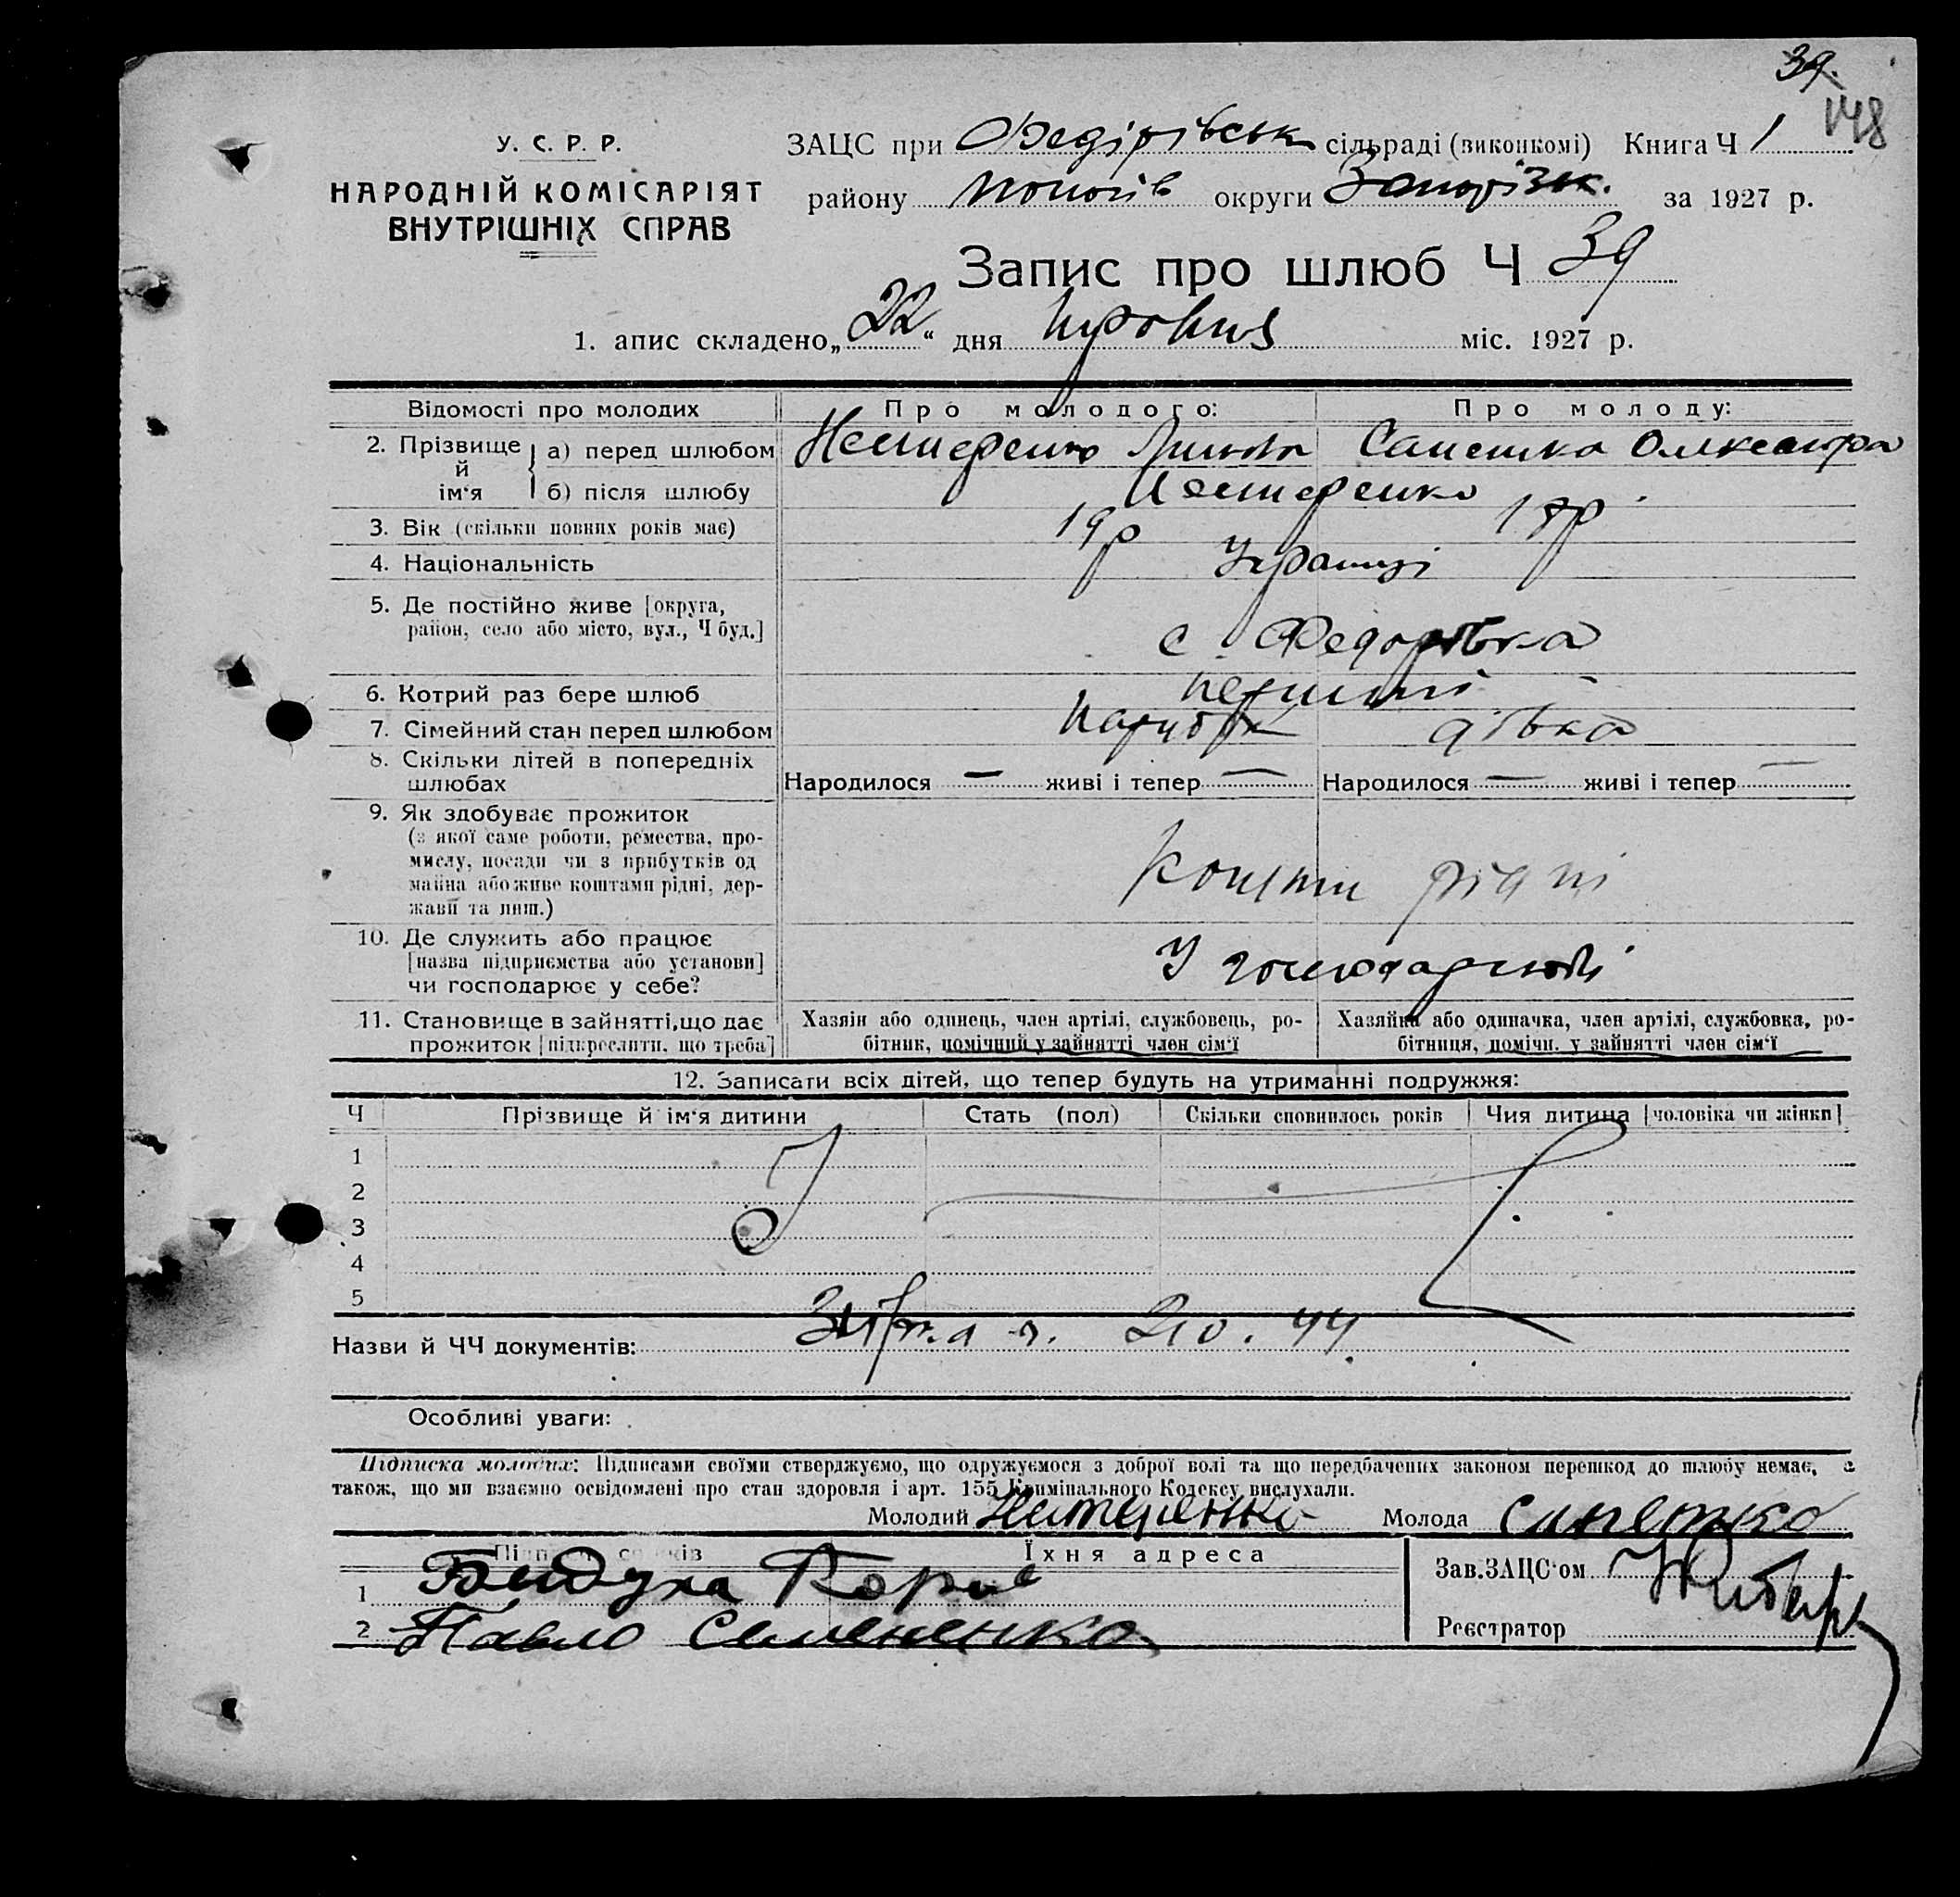 39.
148
У. С. Р. Р.
НАРОДНІЙ КОМІСАРІЯТ
ВНУТРІШНІХ СПРАВ
ЗАЦС при Федірівськ сільраді (виконкомі) Книга Ч 1
району округи Запорізьк. за 1927 р.
Запис про шлюб Ч 39
1. апис складено „22“ дня міс. 1927 р.
Відомості про молодих
Про молодого:
Про молоду:
2. Прізвище й ім‘я
а) перед шлюбом
Нестеренко
Сапешка Олександра
б) після шлюбу
Нестеренко
3. Вік (скільки повних років має)
19 р
18 р
4. Національність
Українці
5. Де постійно живе [округа,
район, село або місто, вул., Ч буд.]
с. Федорівка
6. Котрий раз бере шлюб
перший
7. Сімейний стан перед шлюбом
парубок
дівка
8. Скільки дітей в попередніх
шлюбах
Народилося — живі і тепер —
Народилося — живі і тепер —
9. Як здобуває прожиток
(з якої саме роботи, ремества, про-
мислу, посади чи з прибутків од
майна або живе коштами рідні, дер-
жави та инш.)
Кошти рідні
10. Де служить або працює
[назва підприємства або установи]
чи господарює у себе?
У господарстві
11. Становище в зайнятті, що дає
прожиток [підкреслити, що треба]
Хазяін або одинець, член артілі, службовець, ро-
бітник, помічний у зайнятті член сім‘ї
Хазяйка або одиначка, член артілі, службовка, ро-
бітниця, помічн. у зайнятті член сім‘ї
12. Записати всіх дітей, що тепер будуть на утриманні подружжя:
Ч
Прізвище й ім‘я дитини
Стать (пол)
Скільки сповнилось років
Чия дитина [чоловіка чи жінки]
1
2
3
4
5
Назви й ЧЧ документів:
Особливі уваги:
Підписка молодих: Підписами своїми стверджуємо, що одружуємося з доброї волі та що передбачених законом перешкод до шлюбу немає, а
також, що ми взаємно освідомлені про стан здоровля і арт. 155 Кримінального Кодексу вислухали.
Молодий Нестеренко
Молода Сапешко
Їхня адреса
1
2 Павло Семененко
Зав. ЗАЦС‘ом
Реєстратор